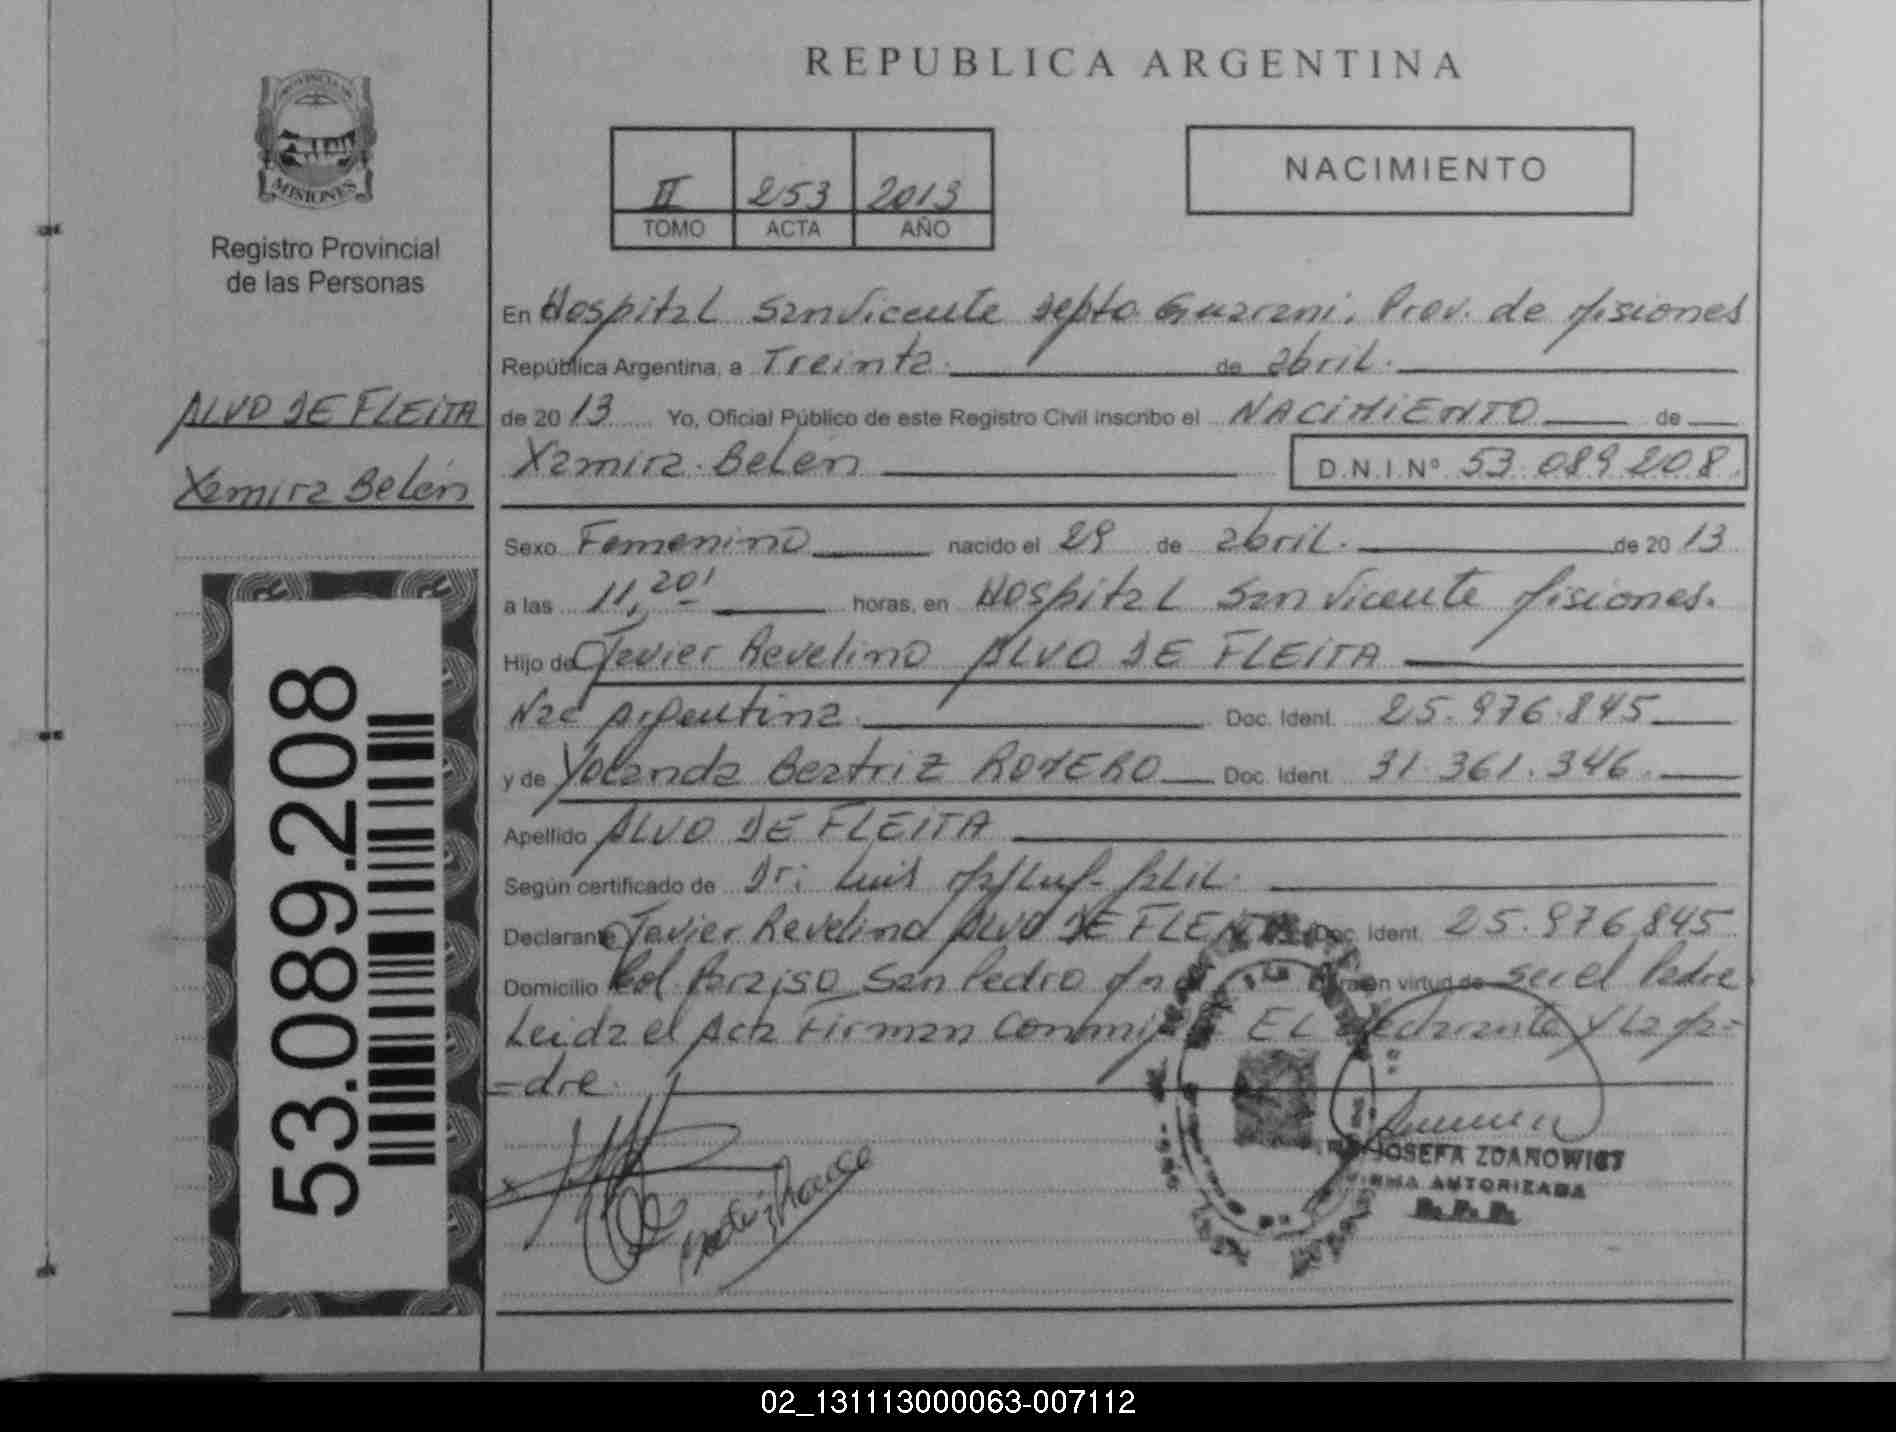 REPUBLICA ARGENTINA
PROVINCIA DE
MISIONES
Registro Provincial
de las Personas
II 253 2013
TOMO ACTA AÑO
NACIMIENTO
En Hospital San Vicente Depto. Guarani, Prov. de Misiones
República Argentina, a Treinta de abril.
de 20 13 Yo, Oficial Público de este Registro Civil inscribo el NACIMIENTO de
Xamira Belén D.N.I.Nº 53.089.208
ALVO DE FLEITA
Xamira Belén
Sexo Femenino nacido el 29 de abril. de 20 13
a las 11,20' horas, en Hospital San Vicente Misiones.
Hijo de Javier Revelino ALVO DE FLEITA
Nac Argentina. Doc. Ident. 25.976.845
y de Yolanda Beatriz ROMERO Doc. Ident. 31.361.346.
Apellido ALVO DE FLEITA
Según certificado de Dr: Luis
Declarante Javier Revelino ALVO DE FLEITA Doc. Ident. 25.976.845
Domicilio Col. Paraiso San Pedro en virtud de ser el Padre
Leida el Acta Firman Conmigo EL declarante y la Ma=
=dre.
JOSEFA ZDANOWICZ
FIRMA AUTORIZADA
R. P. P.
53.089.208
02_131113000063-007112